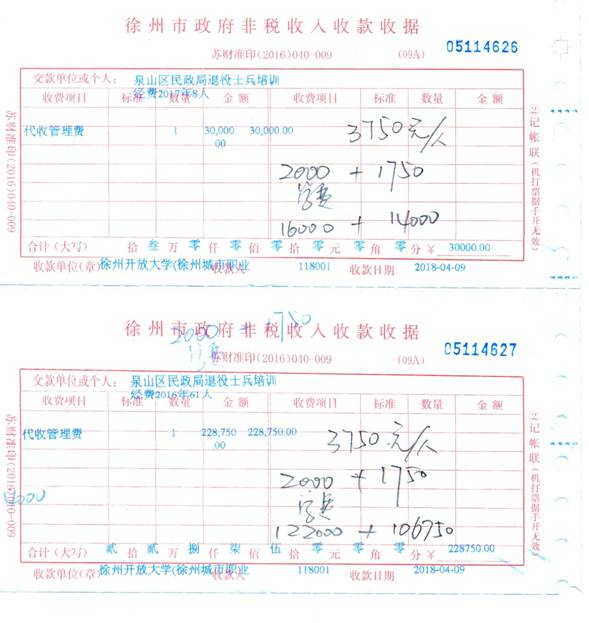 徐州市政府非税收入收款收据
苏财准印(2016)040-009 (09A) 05114626
交款单位或个人: 泉山区民政局退役士兵培训
经费2017年8人
收费项目 标准 数量 金额 收费项目 标准 数量 金额
代收管理费 1 30,000.00 30,000.00 3750元/人
2000 + 1750
学费
16000 + 14000
合计(大写) 拾 叁 万 零 仟 零 佰 零 拾 零 元 零 角 零 分 ¥ 30000.00
收款单位(章) 徐州开放大学(徐州城市职业 收款人 118001 收款日期 2018-04-09
苏财准印(2016)040-009
②记帐联(机打票据手开无效)
徐州市政府非税收入收款收据
2000 + 1750
学费
苏财准印(2016)040-009 (09A) 05114627
交款单位或个人: 泉山区民政局退役士兵培训
经费2016年61人
收费项目 标准 数量 金额 收费项目 标准 数量 金额
代收管理费 1 228,750.00 228,750.00 3750元/人
2000 + 1750
学费
122000 + 106750
合计(大写) 贰 拾 贰 万 捌 仟 柒 佰 伍 拾 零 元 零 角 零 分 ¥ 228750.00
收款单位(章) 徐州开放大学(徐州城市职业 收款人 118001 收款日期 2018-04-09
苏财准印(2016)040-009
②记帐联(机打票据手开无效)